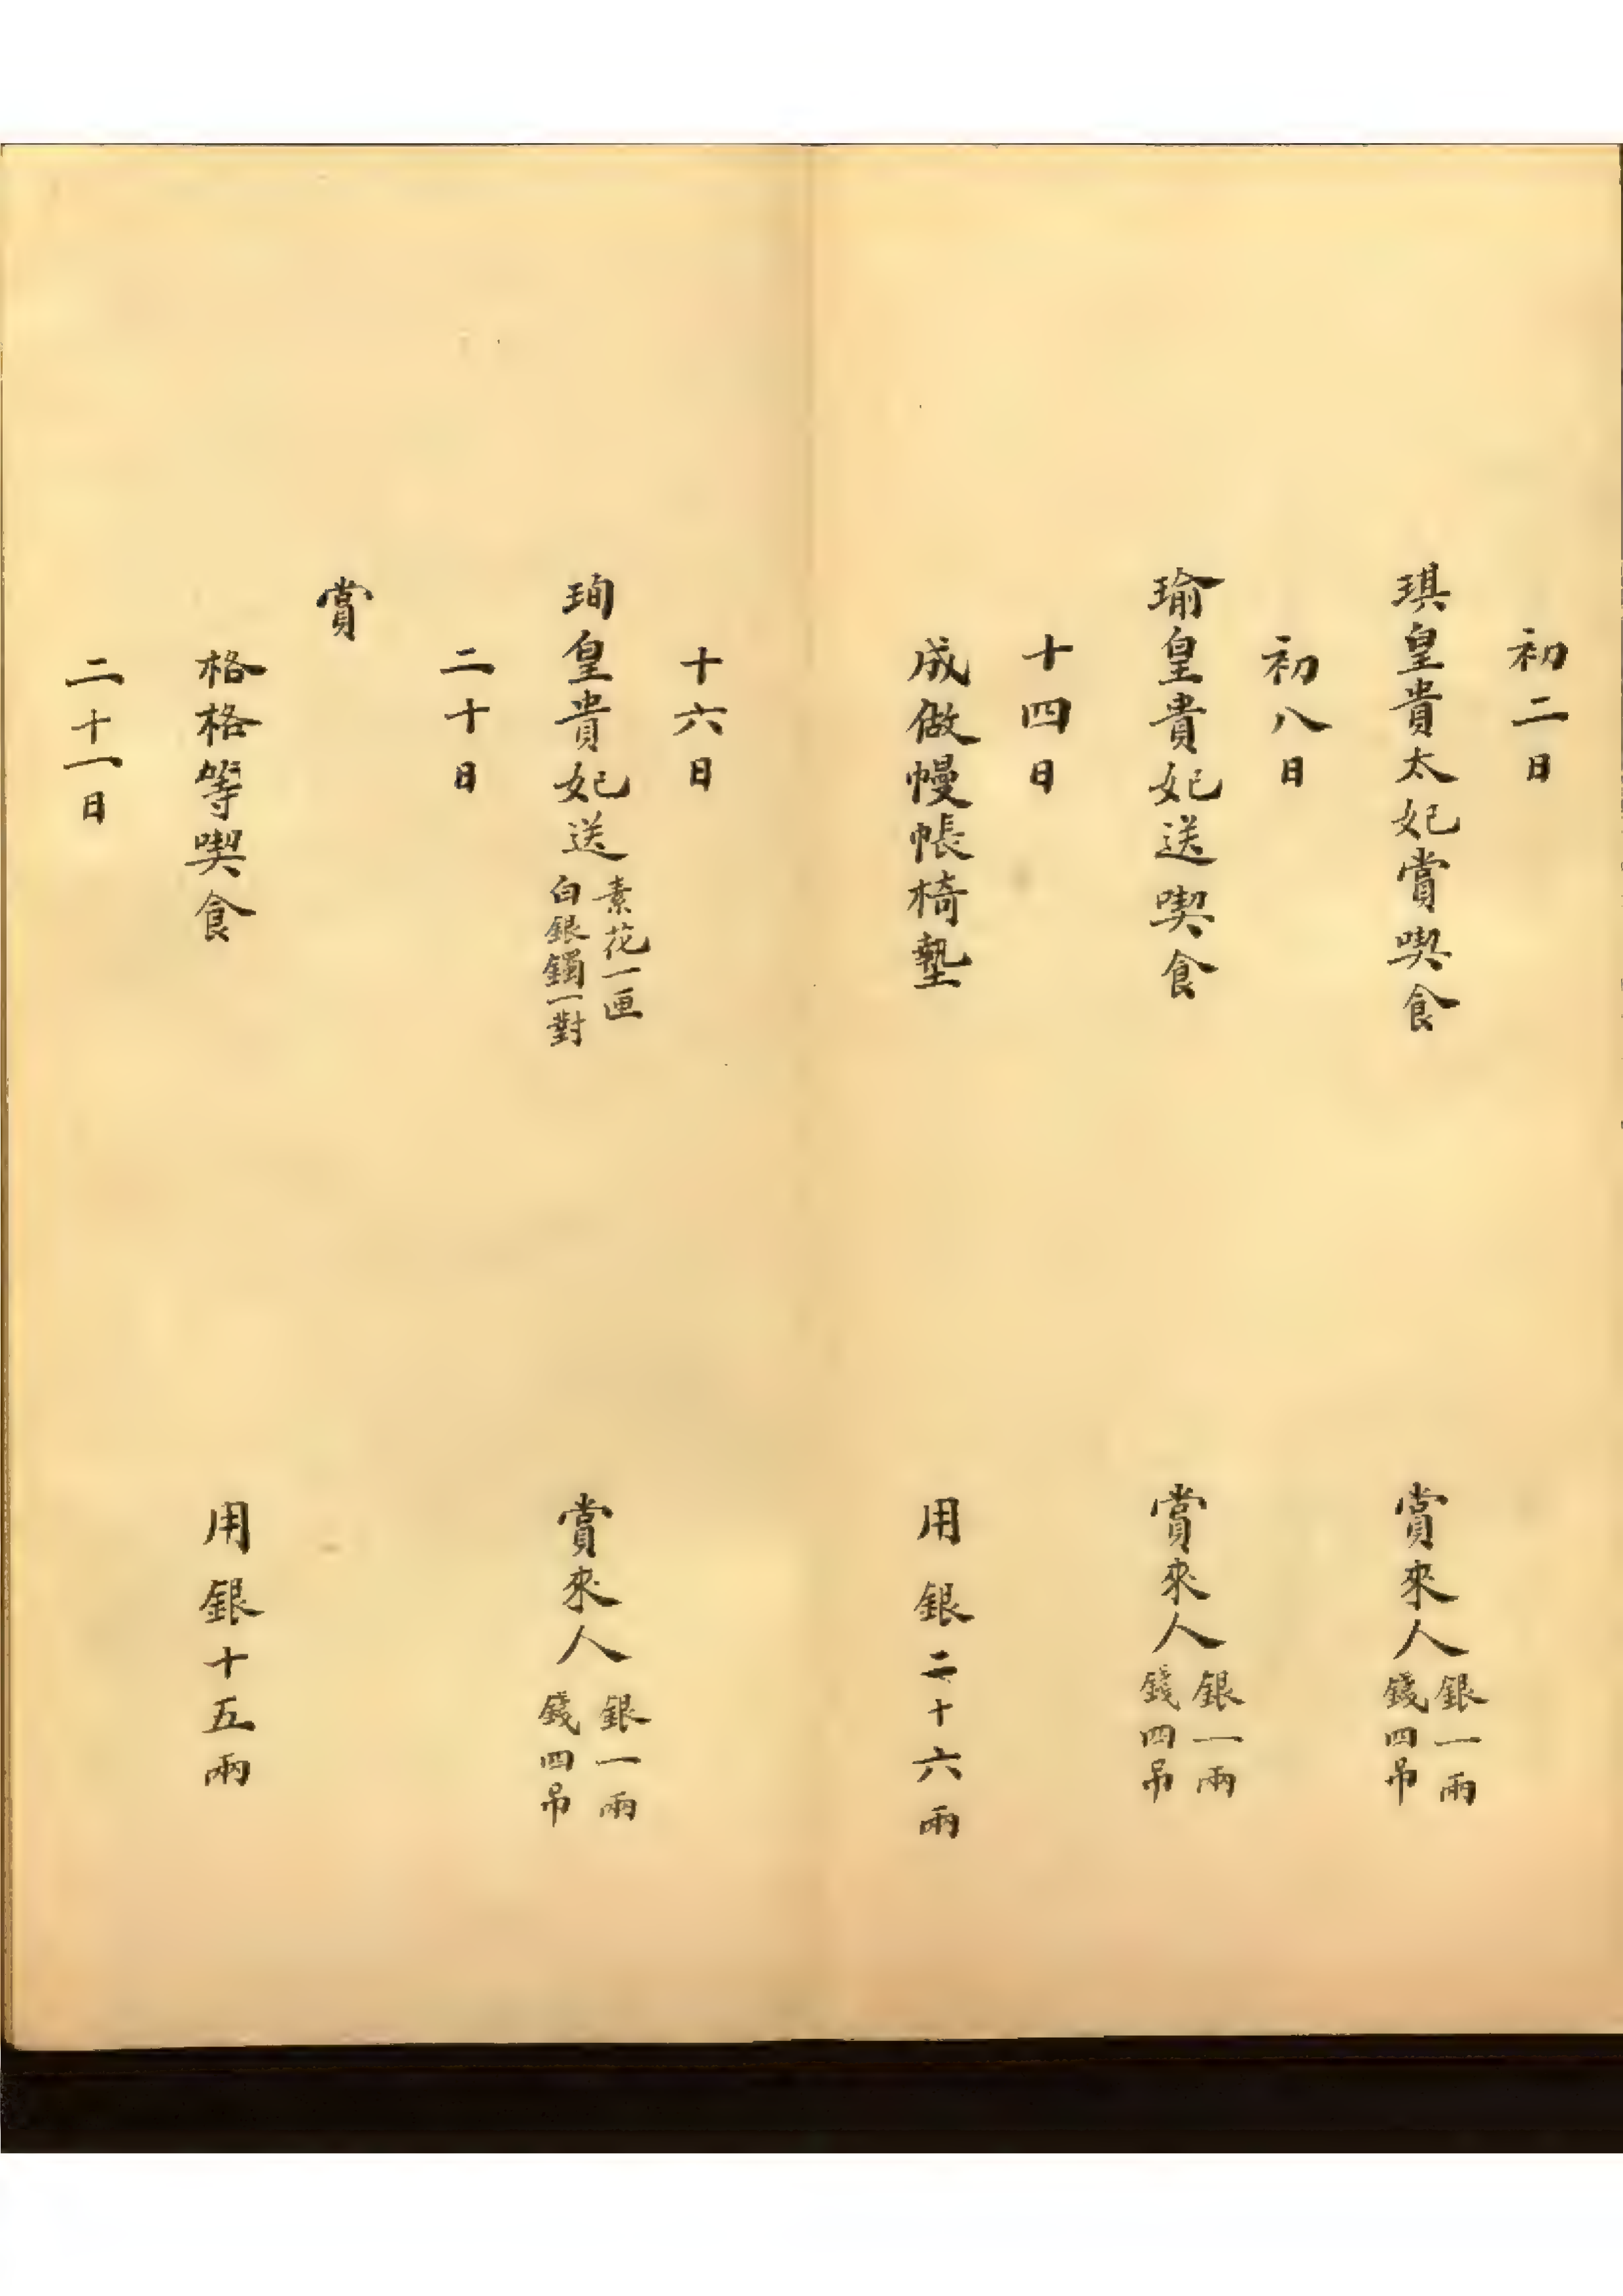 初二日
琪皇貴太妃賞喫食 賞來人 銀一兩 錢四吊
初八日
瑜皇貴妃送喫食 賞來人 銀一兩 錢四吊
十四日
成做幔帳椅墊 用銀二十六兩
十六日
珣皇貴妃送 素花一匣 白銀鐲一對 賞來人 銀一兩 錢四吊
二十日
賞
格格等喫食 用銀十五兩
二十一日